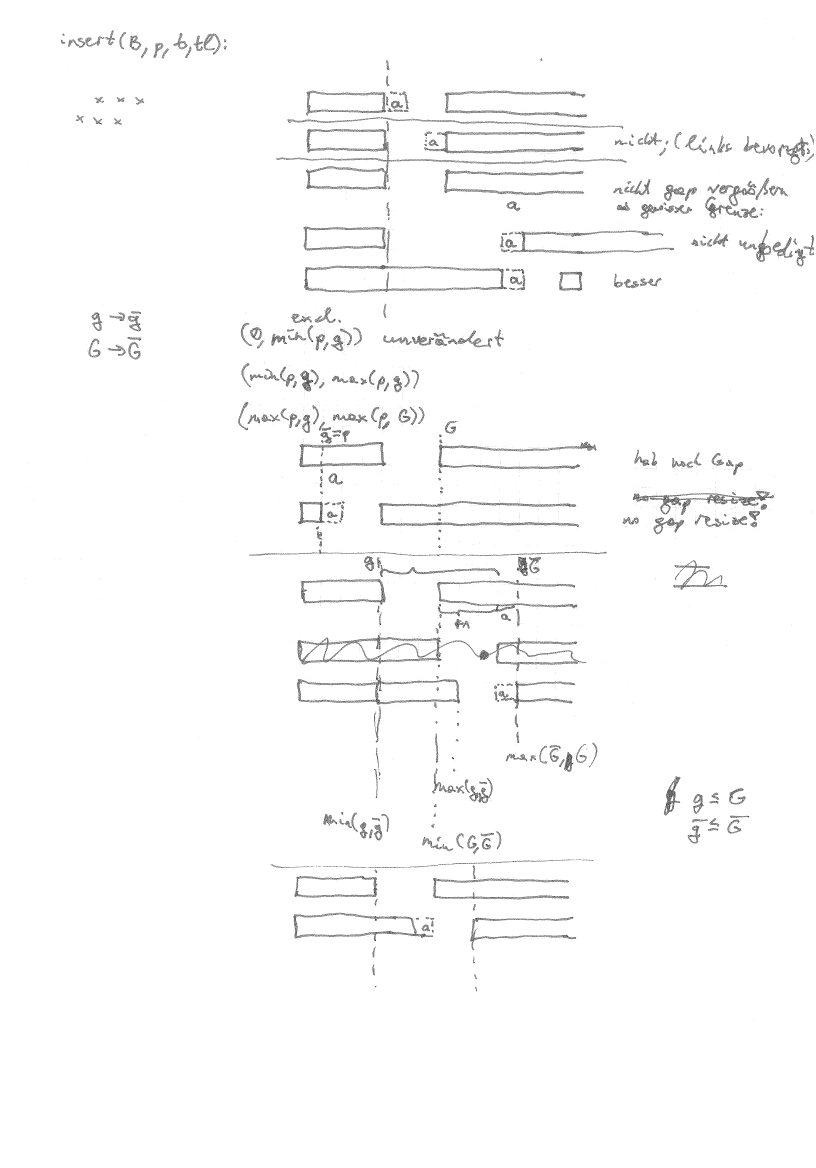 insert(B, p, b, tl):
x x x
x x x
a
a nicht; (links bevorzugt)
nicht gap vergrößen
a ab gewisser Grenze:
a nicht unbedingt
a besser
g → g̅
G → G̅
excl.
(0, min(p,g)) unverändert
(min(p,g), max(p,g))
(max(p,g), max(p,G))
g̅=p G
hab noch Gap
a
no gap resize!
a no gap resize!
g G̅
a
a
max(G̅, G)
max(g,g̅)
g ≤ G
g̅ ≤ G̅
min(g,g̅)
min(G,G̅)
a